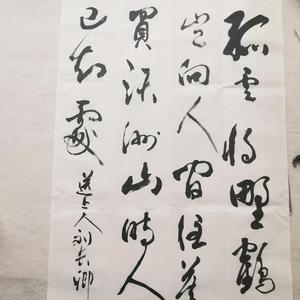 孤雲將野鶴
豈向人間住莫
買沃洲山時人
已知處 送上人 劉長卿